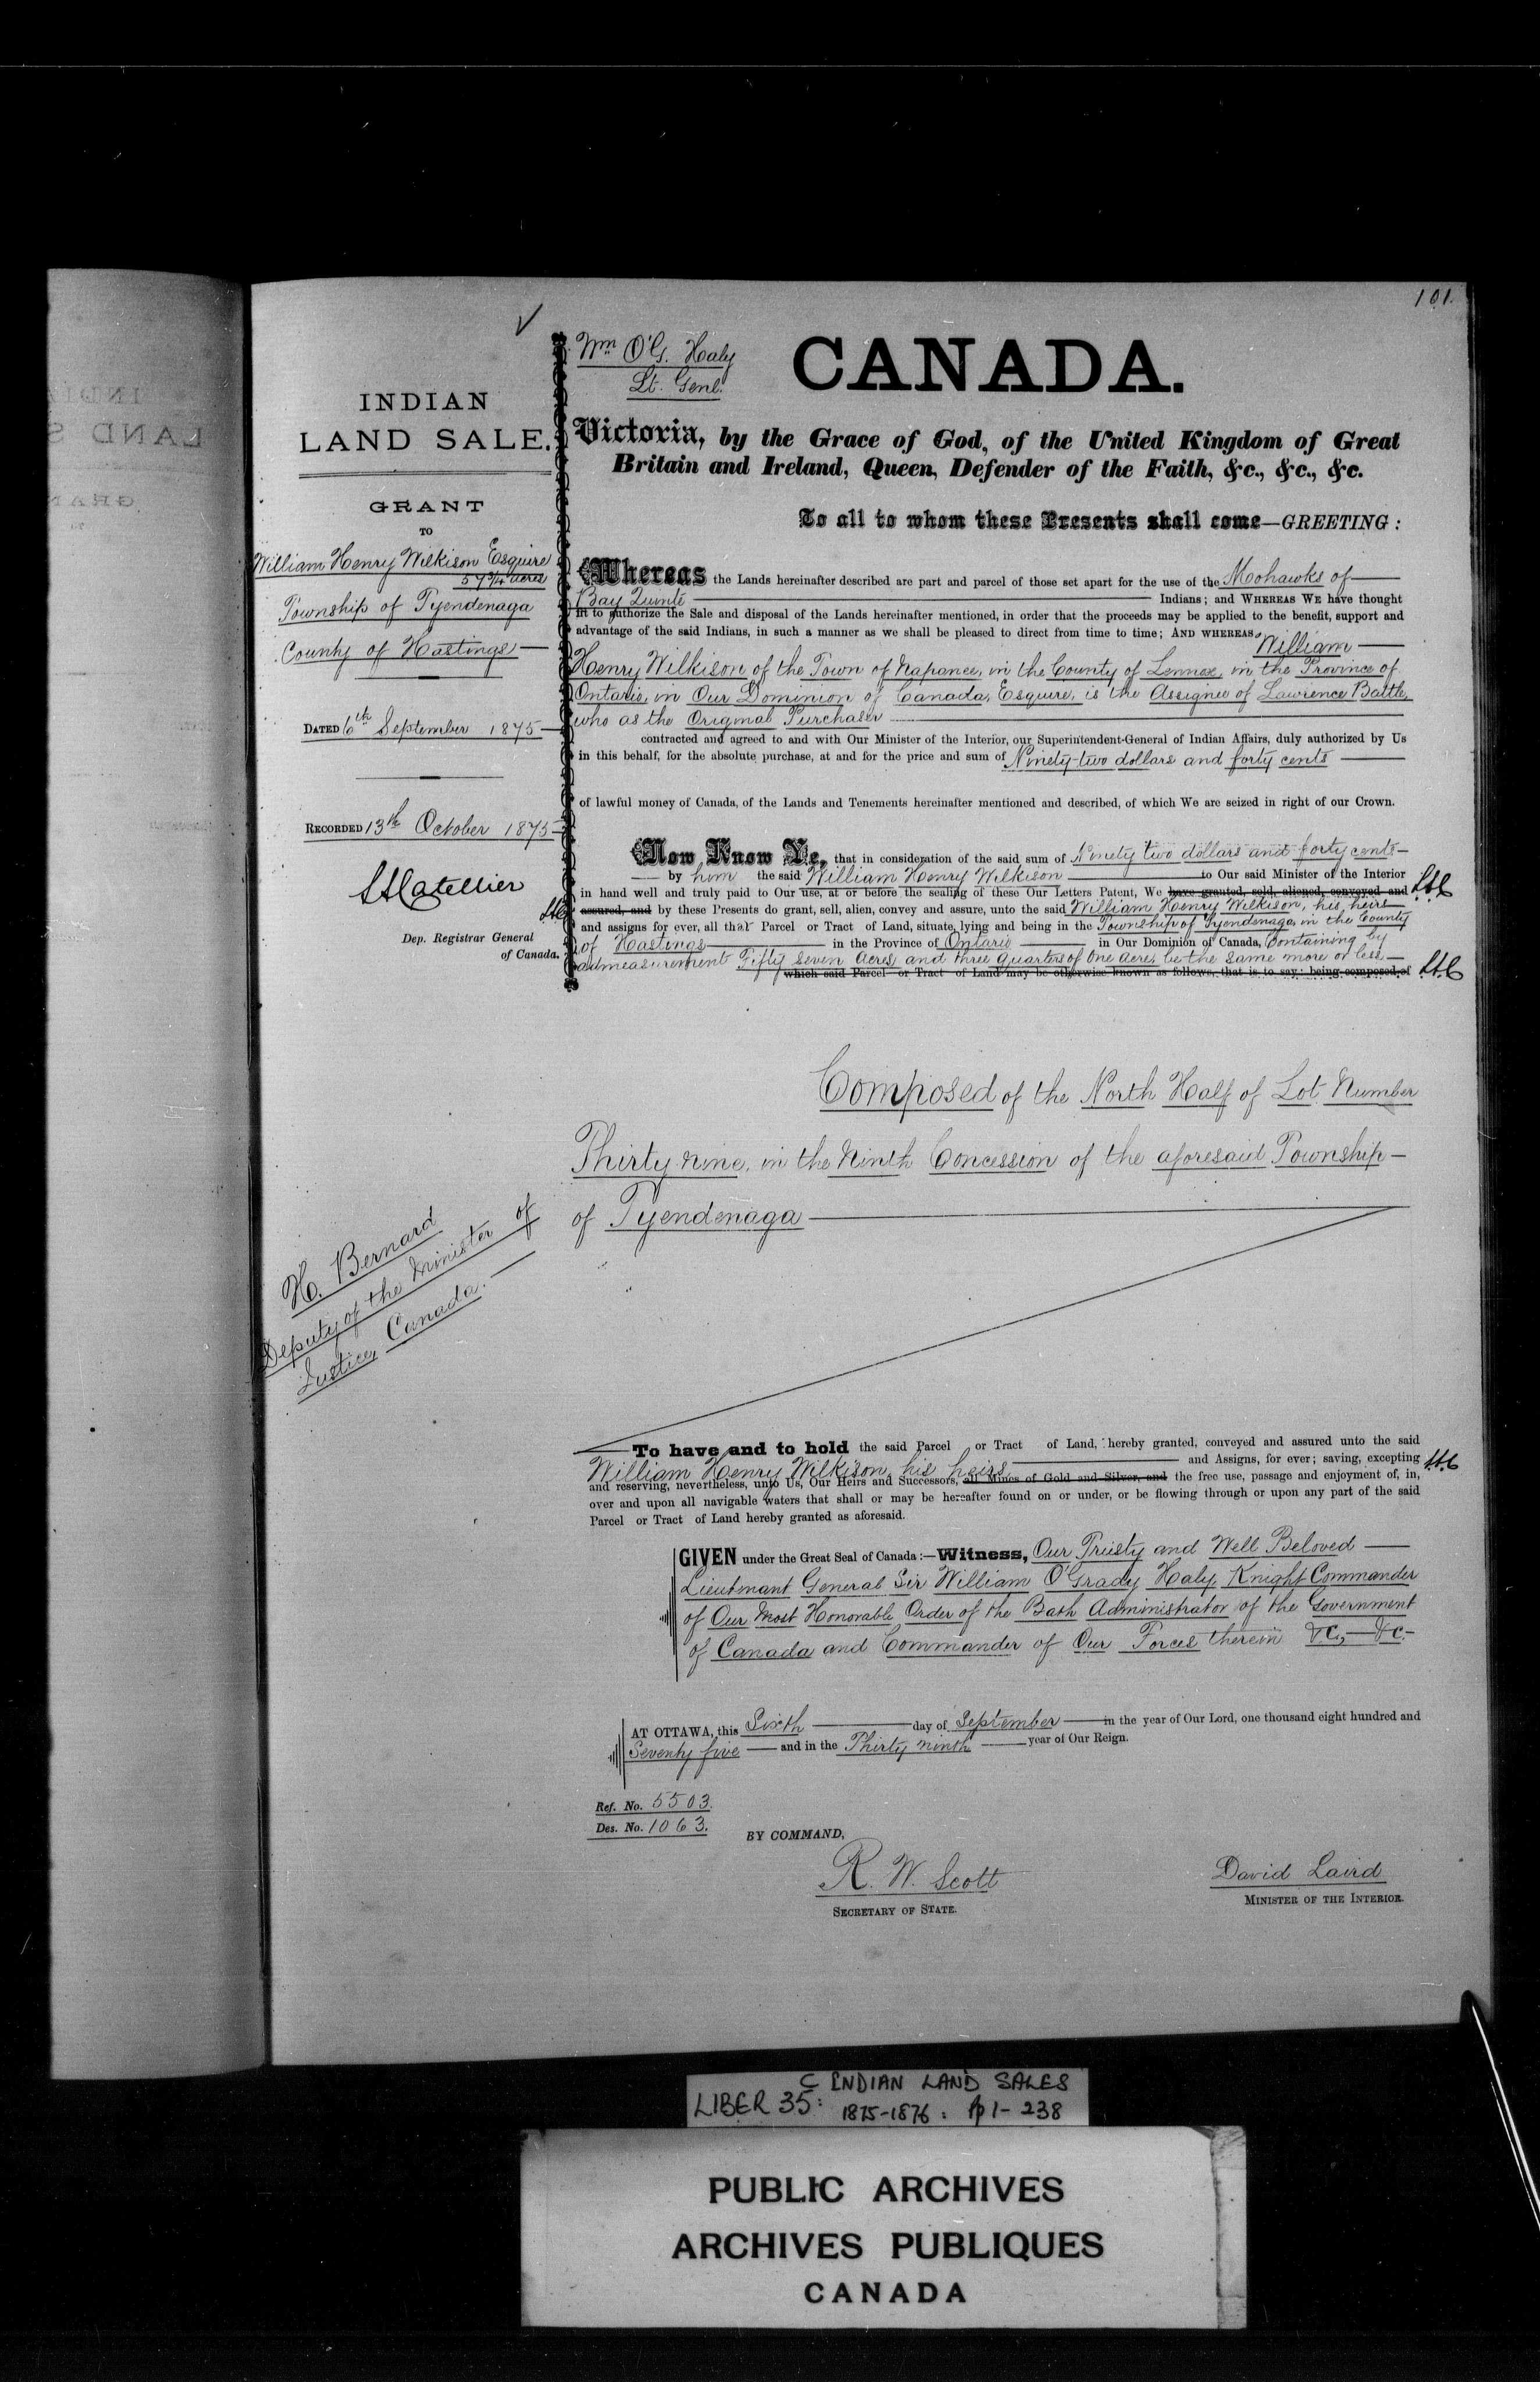 101.
Wm O'G. Haly
Lt. Genl.
CANADA.
INDIAN
LAND SALE.
GRANT
TO
William Henry Wilkison Esquire
57 3/4 acres
Township of Tyendenaga
County of Hastings
DATED 6th September 1875
RECORDED 13th October 1875
Dep. Registrar General
of Canada.
H. Bernard
Deputy of the Minister of
Justice, Canada.
Victoria, by the Grace of God, of the United Kingdom of Great
Britain and Ireland, Queen, Defender of the Faith, &c., &c., &c.
To all to whom these Presents shall come—GREETING:
Whereas the Lands hereinafter described are part and parcel of those set apart for the use of the Mohawks of
Bay Quinté Indians; and WHEREAS WE have thought
fit to authorize the Sale and disposal of the Lands hereinafter mentioned, in order that the proceeds may be applied to the benefit, support and
advantage of the said Indians, in such a manner as we shall be pleased to direct from time to time; AND WHEREAS, William
Henry Wilkison of the Town of Napanee, in the County of Lennox, in the Province of
Ontario, in Our Dominion of Canada, Esquire, is the Assignee of Lawrence Battle,
who as the Original Purchaser
contracted and agreed to and with Our Minister of the Interior, our Superintendent-General of Indian Affairs, duly authorized by Us
in this behalf, for the absolute purchase, at and for the price and sum of Ninety-two dollars and forty cents
of lawful money of Canada, of the Lands and Tenements hereinafter mentioned and described, of which We are seized in right of our Crown.
Now Know Ye, that in consideration of the said sum of Ninety two dollars and forty cents
by him the said William Henry Wilkison to Our said Minister of the Interior
in hand well and truly paid to Our use, at or before the sealing of these Our Letters Patent, We have granted, sold, aliened, conveyed and
assured, and by these Presents do grant, sell, alien, convey and assure, unto the said William Henry Wilkison, his heirs
and assigns for ever, all that Parcel or Tract of Land, situate, lying and being in the Township of Tyendenaga, in the County
of Hastings in the Province of Ontario in Our Dominion of Canada, Containing by
admeasurement Fifty seven Acres, and three quarters of One Acre, be the same more or less
which said Parcel or Tract of Land may be otherwise known as follows, that is to say: being composed of
Composed of the North Half of Lot Number
Thirty nine, in the Ninth Concession of the aforesaid Township
of Tyendenaga
To have and to hold the said Parcel or Tract of Land, hereby granted, conveyed and assured unto the said
William Henry Wilkison, his heirs and Assigns, for ever; saving, excepting
and reserving, nevertheless, unto Us, Our Heirs and Successors, all Mines of Gold and Silver, and the free use, passage and enjoyment of, in,
over and upon all navigable waters that shall or may be hereafter found on or under, or be flowing through or upon any part of the said
Parcel or Tract of Land hereby granted as aforesaid.
GIVEN under the Great Seal of Canada:—Witness, Our Trusty and Well Beloved
Lieutenant General Sir William O'Grady Haly, Knight Commander
of Our Most Honorable Order of the Bath Administrator of the Government
of Canada and Commander of Our Forces therein &c, &c.
AT OTTAWA, this Sixth day of September in the year of Our Lord, one thousand eight hundred and
Seventy five and in the Thirty ninth year of Our Reign.
Ref. No. 5503.
Des. No. 1063.
BY COMMAND,
R. W. Scott
SECRETARY OF STATE.
David Laird
MINISTER OF THE INTERIOR.
C INDIAN LAND SALES
LIBER 35: 1875-1876: pp 1-238
PUBLIC ARCHIVES
ARCHIVES PUBLIQUES
CANADA